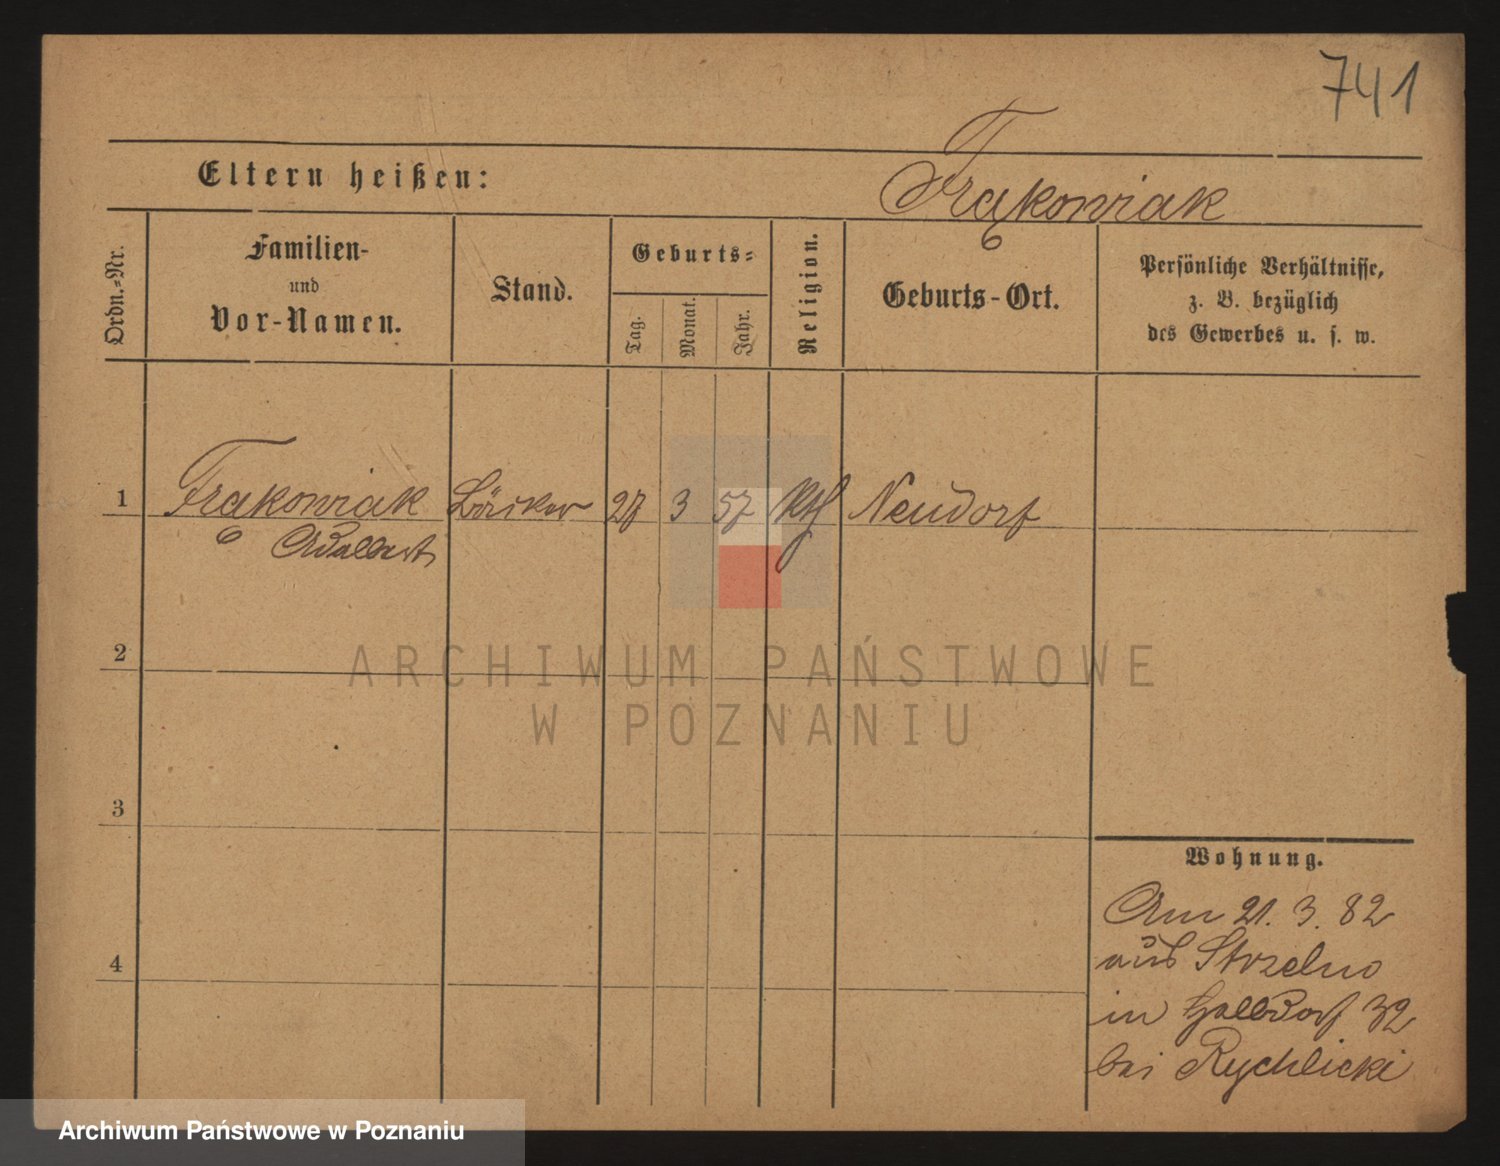 741
Eltern heißen:
Frąkowiak
Ordn.-Nr.
Familien-
und
Vor-Namen.
Stand.
Geburts-
Tag.
Monat.
Jahr.
Religion.
Geburts-Ort.
Persönliche Verhältnisse,
z. B. bezüglich
des Gewerbes u. s. w.
1 Frąkowiak Bäcker 27 3 57 kth Neudorf
Adalbert
2
ARCHIWUM PAŃSTWOWE
W POZNANIU
3
Wohnung.
Am 21. 3. 82
aus Strzelno
4
in Halbdorf 32
bei Rychlicki
Archiwum Państwowe w Poznaniu